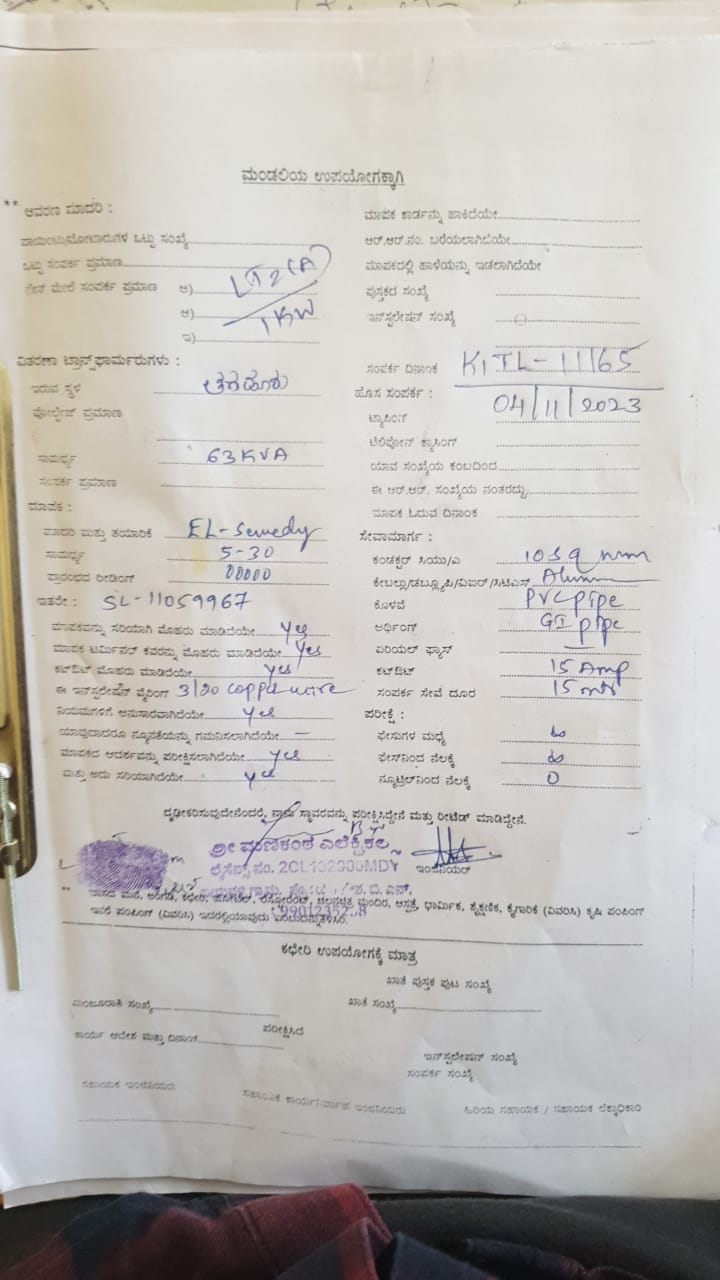 ಮಂಡಲಿಯ ಉಪಯೋಗಕ್ಕಾಗಿ
** ಆವರಣ ಮಾದರಿ :
ಪಾಯಿಂಟು/ಮೋಟಾರುಗಳ ಒಟ್ಟು ಸಂಖ್ಯೆ
ಒಟ್ಟು ಸಂಪರ್ಕ ಪ್ರಮಾಣ
ಲೈನ್ ಮೇಲೆ ಸಂಪರ್ಕ ಪ್ರಮಾಣ ಅ) LT2(A)
ಆ) 1KW
ಇ)
ವಿತರಣಾ ಟ್ರಾನ್ಸ್‌ಫಾರ್ಮರುಗಳು :
ಇರುವ ಸ್ಥಳ
ವೋಲ್ಟೇಜ್ ಪ್ರಮಾಣ
ಸಾಮರ್ಥ್ಯ 63KVA
ಸಂಪರ್ಕ ಪ್ರಮಾಣ
ಮಾಪಕ :
ಮಾದರಿ ಮತ್ತು ತಯಾರಿಕೆ EL-
ಸಾಮರ್ಥ್ಯ 5-30
ಪ್ರಾರಂಭದ ರೀಡಿಂಗ್ 00000
ಇತರೇ : SL-11059967
ಮಾಪಕವನ್ನು ಸರಿಯಾಗಿ ಮೊಹರು ಮಾಡಿದೆಯೇ yes
ಮಾಪಕ ಟರ್ಮಿನಲ್ ಕವರನ್ನು ಮೊಹರು ಮಾಡಿದೆಯೇ yes
ಕಟ್‌ಔಟ್ ಮೊಹರು ಮಾಡಿದೆಯೇ yes
ಈ ಇನ್‌ಸ್ಟಲೇಷನ್ ವೈರಿಂಗ್ 3/20 copper wire
ನಿಯಮಗಳಿಗೆ ಅನುಸಾರವಾಗಿದೆಯೇ yes
ಯಾವುದಾದರೂ ನ್ಯೂನತೆಯನ್ನು ಗಮನಿಸಲಾಗಿದೆಯೇ —
ಮಾಪಕದ ಆದರ್ಶವನ್ನು ಪರೀಕ್ಷಿಸಲಾಗಿದೆಯೇ yes
ಮತ್ತು ಅದು ಸರಿಯಾಗಿದೆಯೇ yes
ಮಾಪಕ ಕಾರ್ಡನ್ನು ಹಾಕಿದೆಯೇ
ಆರ್.ಆರ್.ನಂ. ಬರೆಯಲಾಗಿದೆಯೇ
ಮಾಪಕದಲ್ಲಿ ಹಾಳೆಯನ್ನು ಇಡಲಾಗಿದೆಯೇ
ಪುಸ್ತಕದ ಸಂಖ್ಯೆ
ಇನ್‌ಸ್ಟಲೇಷನ್ ಸಂಖ್ಯೆ
ಸಂಪರ್ಕ ದಿನಾಂಕ KITL-11165
ಹೊಸ ಸಂಪರ್ಕ : 04/11/2023
ಟ್ಯಾಪಿಂಗ್
ಟೆಲಿಫೋನ್ ಕ್ರಾಸಿಂಗ್
ಯಾವ ಸಂಖ್ಯೆಯ ಕಂಬದಿಂದ
ಈ ಆರ್.ಆರ್. ಸಂಖ್ಯೆಯ ನಂತರದ್ದು
ಮಾಪಕ ಓದುವ ದಿನಾಂಕ
ಸೇವಾಮಾರ್ಗ :
ಕಂಡಕ್ಟರ್ ಸಿಯು/ಎ 10sq mm
ಕೇಬಲ್ಲು/ಡಬ್ಲ್ಯೂಪಿ/ವಿಐಆರ್/ಸಿಟಿಎಸ್
ಕೊಳವೆ PVC pipe
ಅರ್ಥಿಂಗ್ GI pipe
ಏರಿಯಲ್ ಫ್ಯೂಸ್
ಕಟ್‌ಔಟ್ 15 Amp
ಸಂಪರ್ಕ ಸೇವೆ ದೂರ 15 mtr
ಪರೀಕ್ಷೆ :
ಫೇಸುಗಳ ಮಧ್ಯೆ ∞
ಫೇಸ್‌ನಿಂದ ನೆಲಕ್ಕೆ ∞
ನ್ಯೂಟ್ರಲ್‌ನಿಂದ ನೆಲಕ್ಕೆ 0
ದೃಢೀಕರಿಸುವುದೇನೆಂದರೆ, ನಾನು ಸ್ಥಾವರವನ್ನು ಪರೀಕ್ಷಿಸಿದ್ದೇನೆ ಮತ್ತು ರೀಟೆಡ್ ಮಾಡಿದ್ದೇನೆ.
ಶ್ರೀ ಮಣಿಕಂಠ ಎಲೆಕ್ಟ್ರಿಕಲ್ಸ್
ಲೈಸೆನ್ಸ್ ನಂ. ಇಂಜಿನಿಯರ್
** ವಾಸದ ಮನೆ, ಅಂಗಡಿ, ಕಛೇರಿ, ಹೋಟೆಲ್, ರೆಸ್ಟೋರೆಂಟ್, ಚಲನಚಿತ್ರ ಮಂದಿರ, ಆಸ್ಪತ್ರೆ, ಧಾರ್ಮಿಕ, ಶೈಕ್ಷಣಿಕ, ಕೈಗಾರಿಕೆ (ವಿವರಿಸಿ) ಕೃಷಿ ಪಂಪಿಂಗ್
ಇತರೆ ಪಂಪಿಂಗ್ (ವಿವರಿಸಿ) ಇದರಲ್ಲಿಯಾವುದು ಎಂಬುದನ್ನುತಿಳಿಸಿರಿ.
ಕಛೇರಿ ಉಪಯೋಗಕ್ಕೆ ಮಾತ್ರ
ಖಾತೆ ಪುಸ್ತಕ ಪುಟ ಸಂಖ್ಯೆ
ಮಂಜೂರಾತಿ ಸಂಖ್ಯೆ ಖಾತೆ ಸಂಖ್ಯೆ
ಕಾರ್ಯ ಆದೇಶ ಮತ್ತು ದಿನಾಂಕ ಪರೀಕ್ಷಿಸಿದೆ
ಇನ್‌ಸ್ಟಲೇಷನ್ ಸಂಖ್ಯೆ
ಸಂಪರ್ಕ ಸಂಖ್ಯೆ
ಸಹಾಯಕ ಇಂಜಿನಿಯರು ಸಹಾಯಕ ಕಾರ್ಯನಿರ್ವಾಹಕ ಇಂಜಿನಿಯರು ಹಿರಿಯ ಸಹಾಯಕ / ಸಹಾಯಕ ಲೆಕ್ಕಾಧಿಕಾರಿ